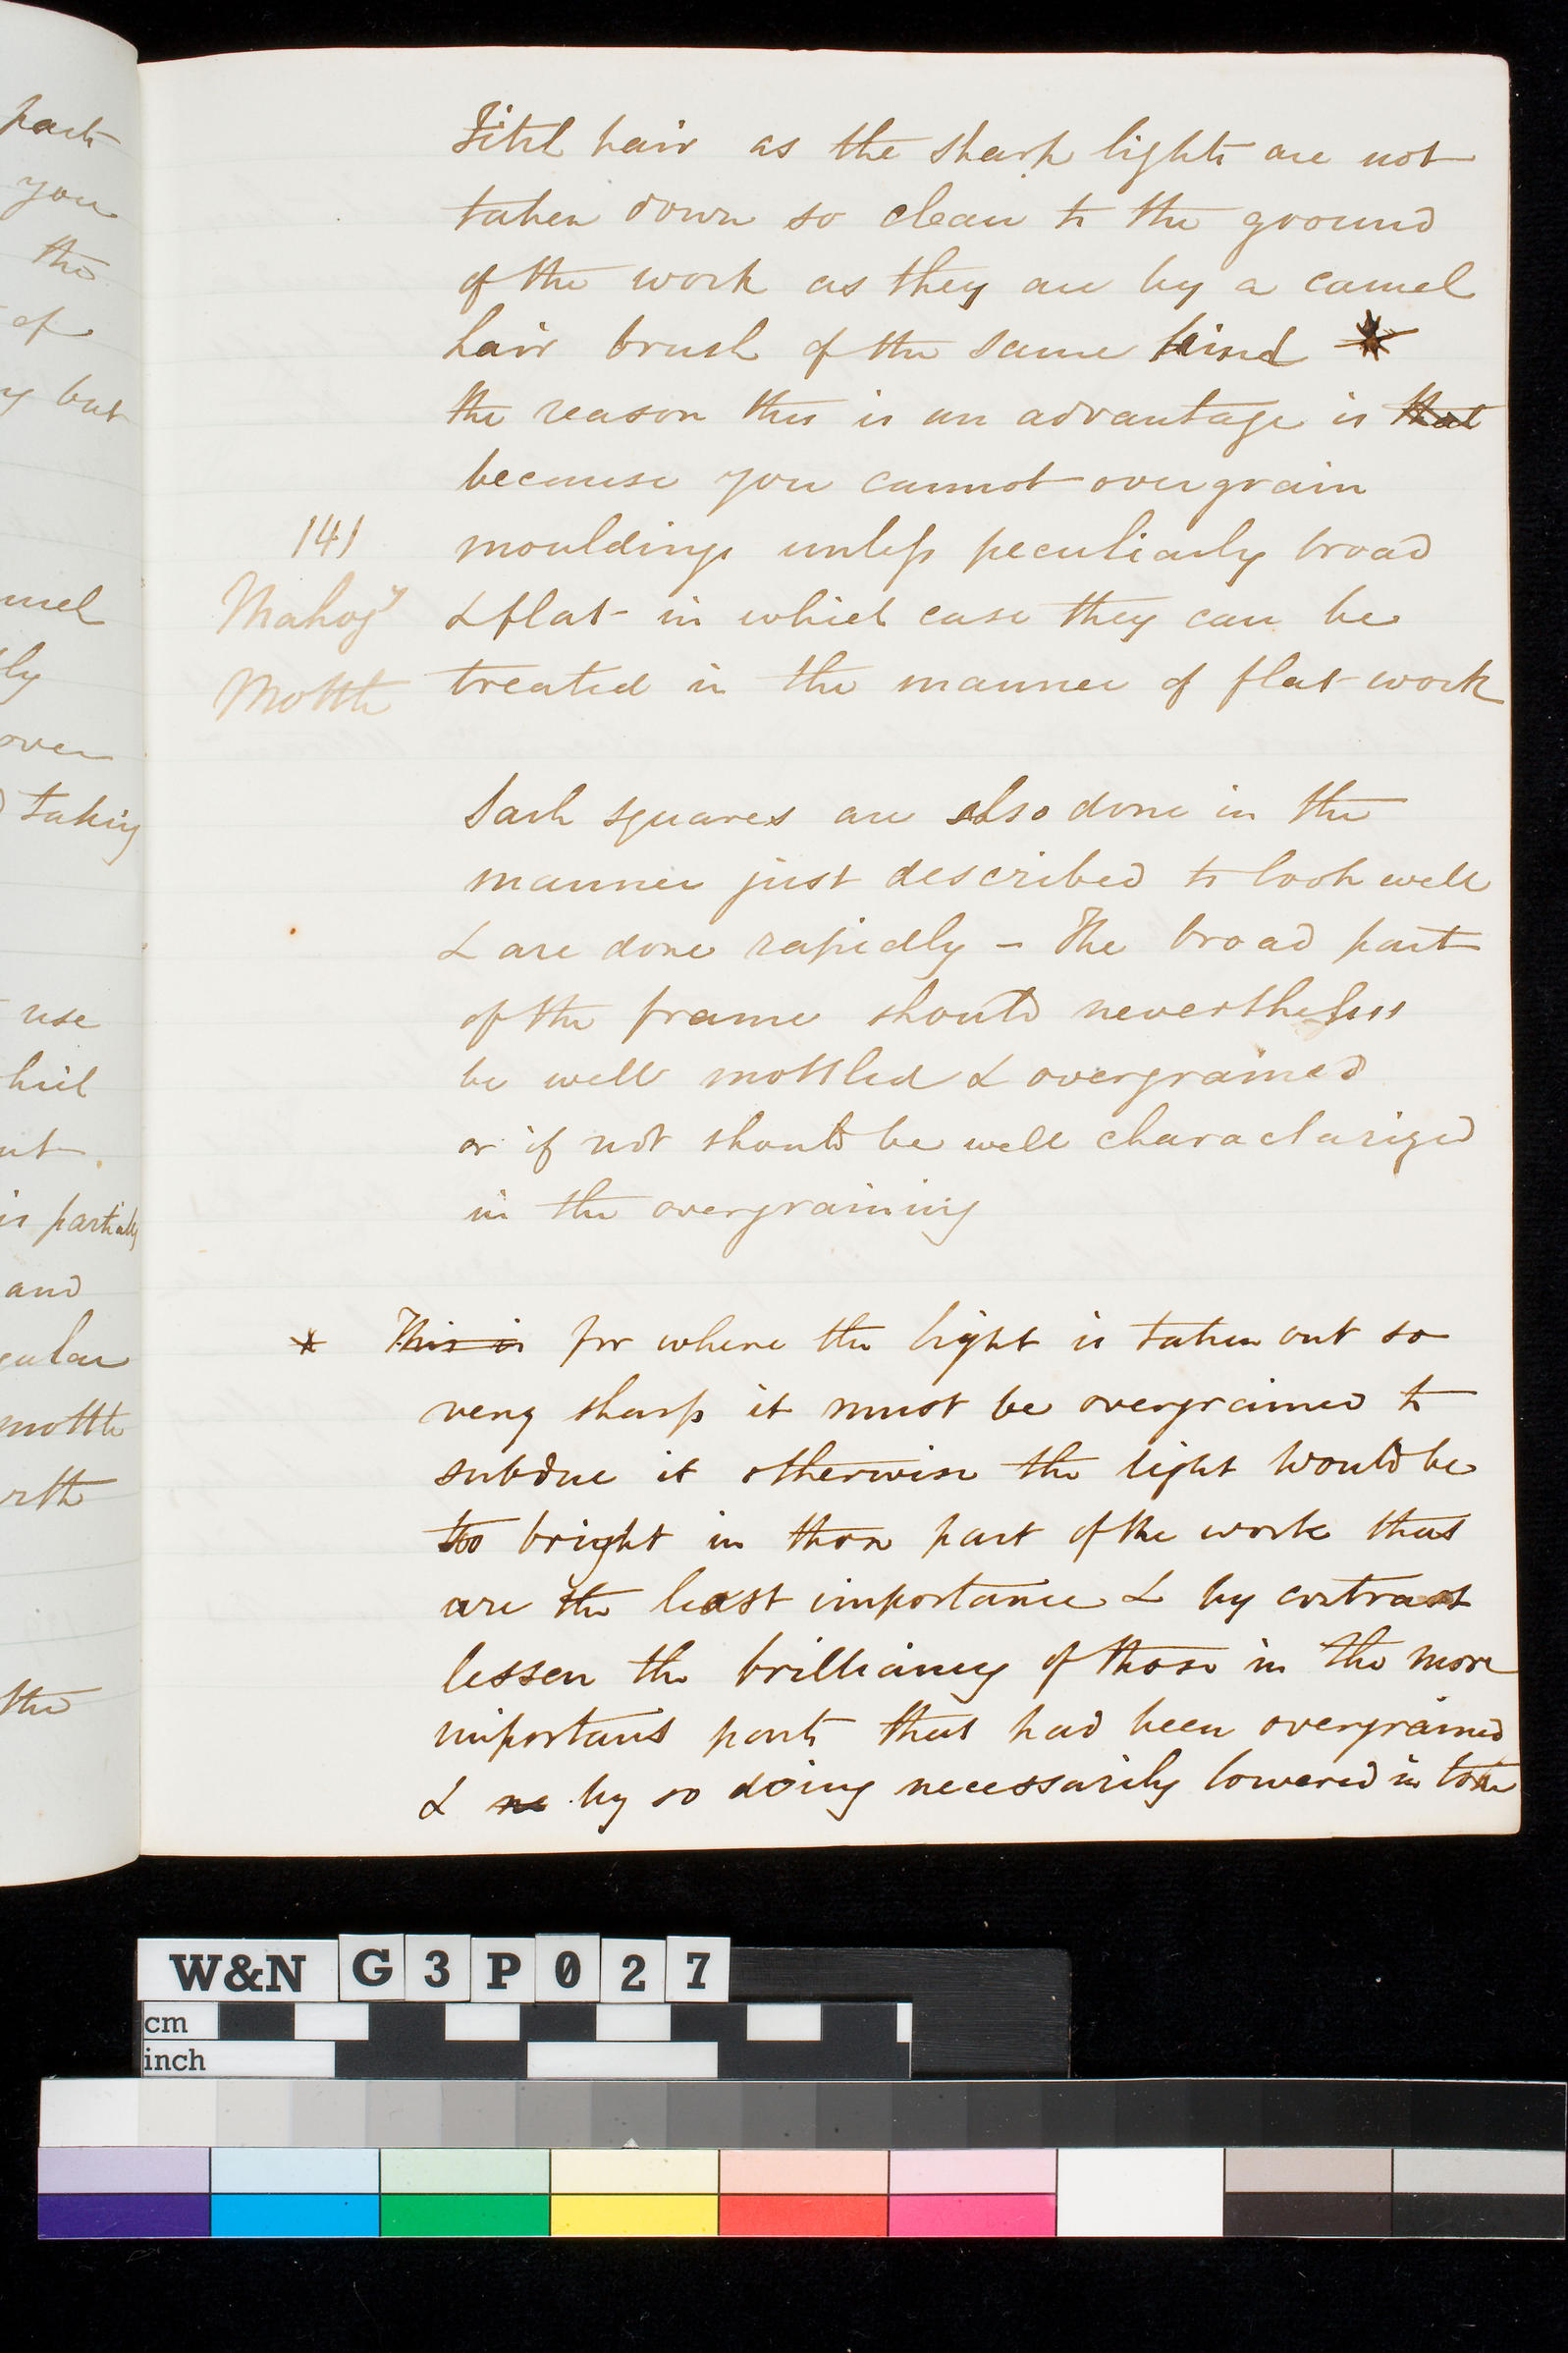 Fitch hair as the sharp lights are not
taken down so clean to the ground
of the work as they are by a camel
hair brush of the same kind *
the reason this is an advantage is that
because you cannot overgrain
141
mouldings unless peculiarly broad
Mahogy
& flat in which case they can be
Mottle
treated in the manner of flat work
Sash squares are also done in the
manner just described to look well
& are done rapidly – The broad part
of the frame should nevertheless
be well mottled & overgrained
or if not should be well characterized
in the overgraining
* This is for where the light is taken out so
very sharp it must be overgrained to
subdue it otherwise the light would be
too bright in those part of the work that
are the least importance & by contrast
lessen the brilliancy of those in the more
important parts that had been overgrained
& ne by so doing necessarily lowered in tone
part
you
the
of
but
over
taking
use
is partially
and
mottle
the
W&N G3P027
cm
inch